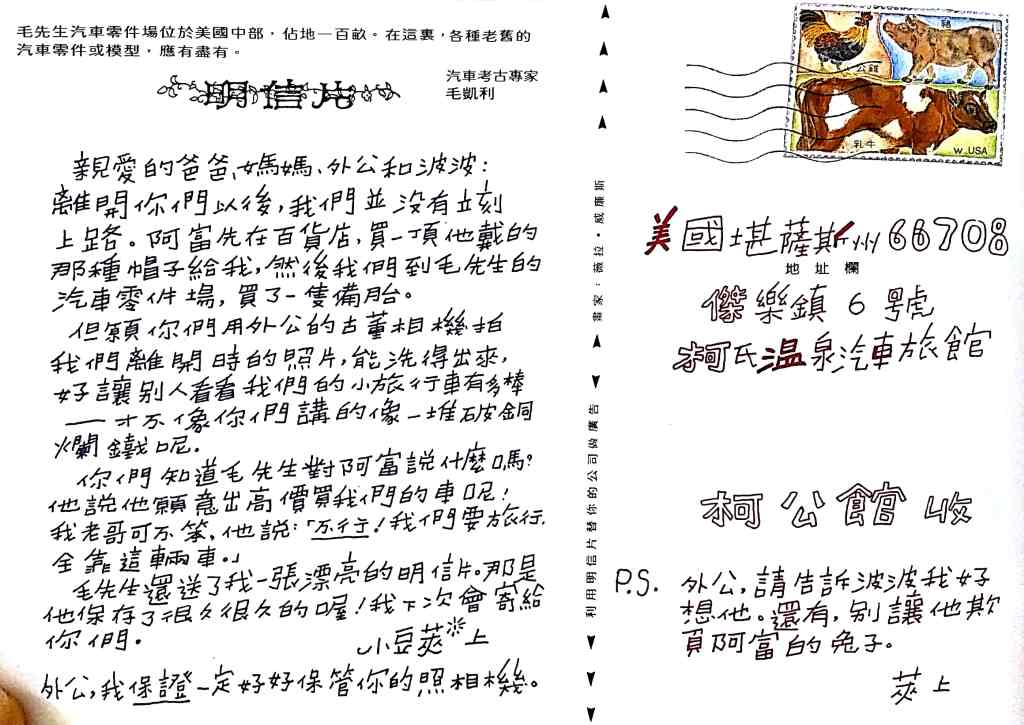 毛先生汽車零件場位於美國中部，佔地一百畝。在這裏，各種老舊的
汽車零件或模型，應有盡有。
汽車考古專家
毛凱利
明信片
親愛的爸爸、媽媽、外公和波波：
離開你們以後，我們並沒有立刻
上路。阿富先在百貨店，買一頂他戴的
那種帽子給我，然後我們到毛先生的
汽車零件場，買了一隻備胎。
但願你們用外公的古董相機拍
我們離開時的照片，能洗得出來，
好讓別人看看我們的小旅行車有多棒
——才不像你們講的像一堆破銅
爛鐵呢．
你們知道毛先生對阿富說什麼嗎？
他說他願意出高價買我們的車呢！
我老哥可不笨，他說：「不行！我們要旅行，
全靠這輛車。」
毛先生還送了我一張漂亮的明信片。那是
他保存了很久很久的喔！我下次會寄給
你們。
小豆莢※上
外公，我保證一定好好保管你的照相機。
畫家：薇拉·威廉斯
利用明信片替你的公司做廣告
公雞
豬
乳牛
W. USA
美國堪薩斯州66708
地址欄
傑樂鎮6號
柯氏温泉汽車旅館
柯公館收
P.S. 外公，請告訴波波我好
想他。還有，別讓他欺
負阿富的兔子。
莢上